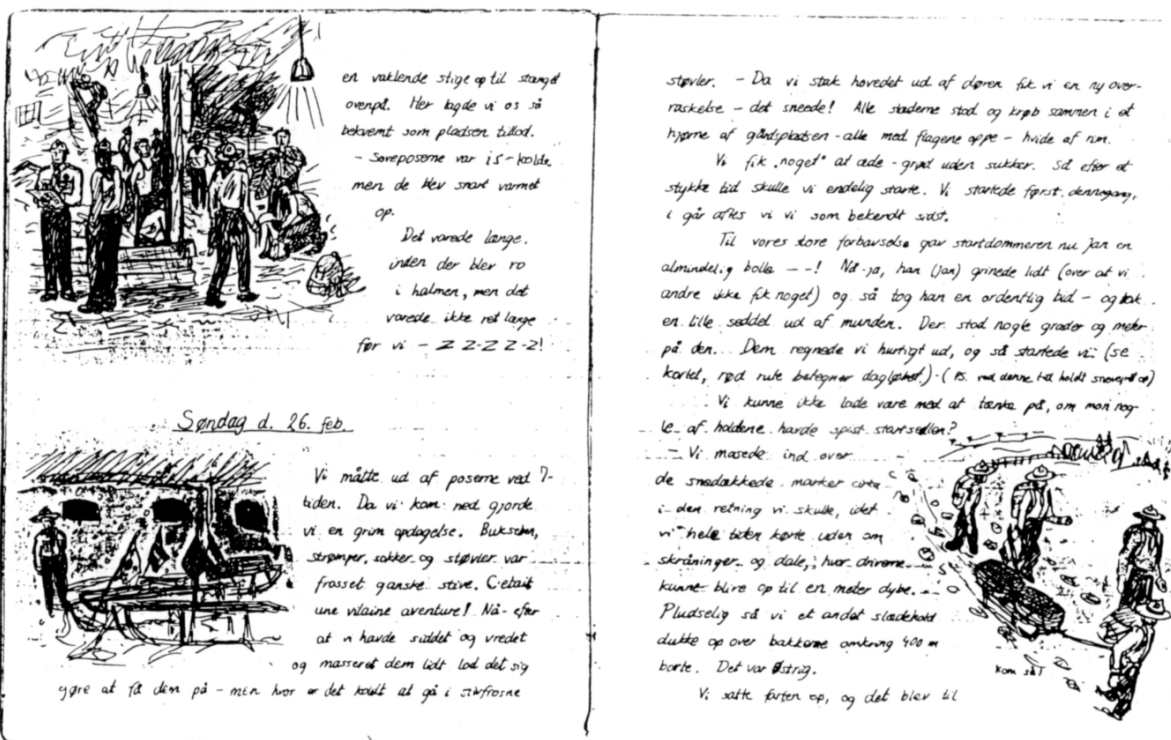 en vaklende stige op til stænget
ovenpå. Her lagde vi os så
bekvemt som pladsen tillod.
- Soveposerne var is-kolde
men de blev snart varmet
op.
Det varede længe.
inden der blev ro
i halmen, men det
varede ikke ret længe
før vi - Z Z-Z Z Z-Z!
Søndag d. 26. feb.
Vi måtte ud af poserne ved 7-
tiden. Da vi kom ned gjorde
vi en grim opdagelse. Bukserne,
strømper, sokker og støvler var
frosset ganske stive. C'etait
une vilaine aventure! Nå- efter
at vi havde siddet og vredet
og masseret dem lidt lod det sig
gøre at få dem på - men hvor er det koldt at gå i stivfrosne
støvler. - Da vi stak hovedet ud af døren fik vi en ny over-
raskelse - det sneede! Alle slæderne stod og krøb sammen i et
hjørne af gårdspladsen - alle med flagene oppe - hvide af rim.
Vi fik "noget" at æde - grød uden sukker. Så efter et
stykke tid skulle vi endelig starte. Vi startede først dennegang,
i går aftes vi vi som bekendt sidst.
Til vores store forbavselse gav startdommeren nu Jan en
almindelig bolle - - -! Nå-ja, han (Jan) grinede lidt (over at vi
andre ikke fik noget) og så tog han en ordentlig bid - og tak
en lille seddel ud af munden. Der stod nogle grader og meter
på den. Dem regnede vi hurtigt ud, og så startede vi: (se
kortet, rød rute betegner dagløbet.) - (PS. ved denne tid holdt snevejret op)
Vi kunne ikke lade være med at tænke på, om mon nog-
le af holdene havde spist startsedlen?
- Vi masede ind over
de snedækkede marker cirka
i den retning vi skulle, idet
vi hele tiden kørte uden om
skråninger og dale, hvor driverne
kunne blive op til en meter dybe.
Pludselig så vi et andet slædehold
dukke op over bakkerne omkring 400 m
borte. Det var Østrig.
Vi satte farten op, og det blev til
Kom så!